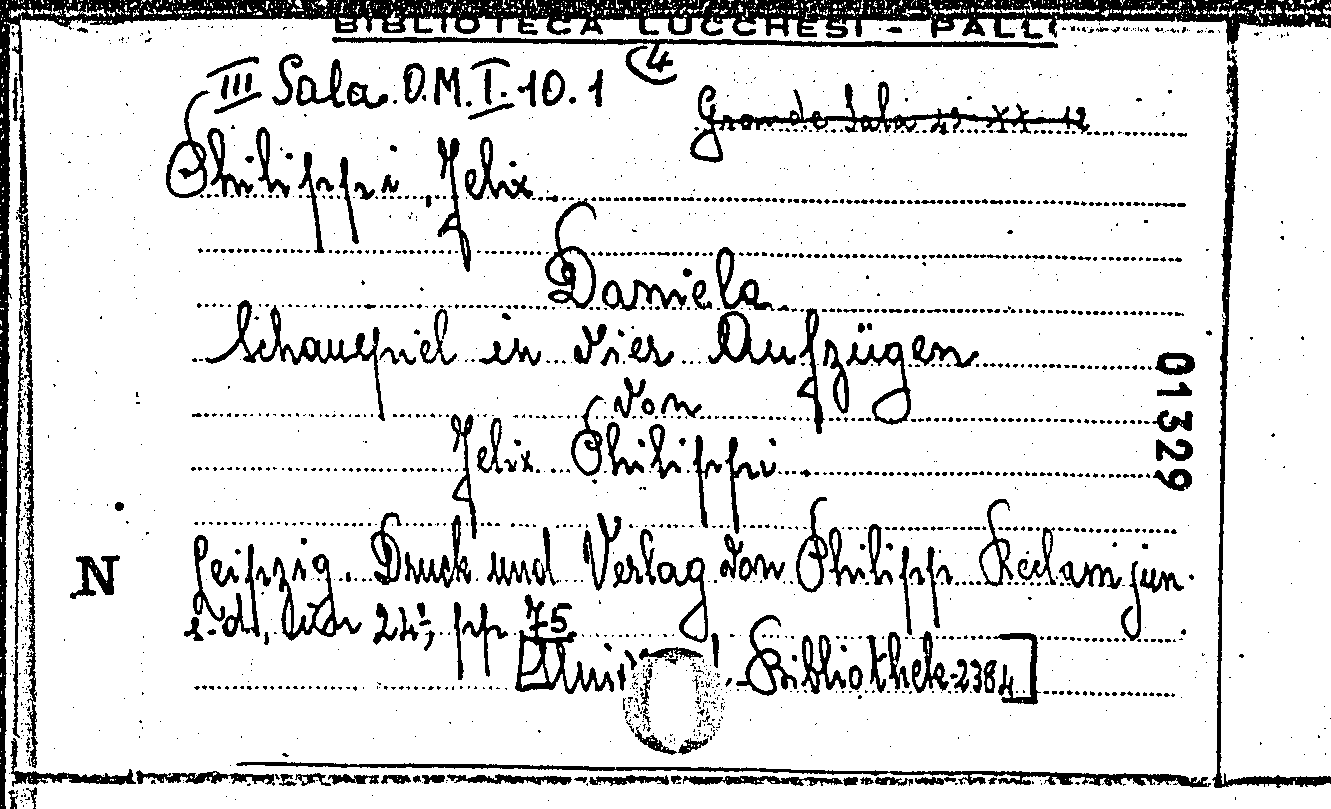 BIBLIOTECA LUCCHESI - PALLI
4
III Sala O.M.I. 10. 1
Grande Sala 23 XX 12
Philippi, Felix
Daniela
Schauspiel in vier Aufzügen
von
Felix Philippi.
01329
N
Leipzig. Druck und Verlag von Philipp Reclam jun.
s. d., in 24°, pp. 75.
Bibliothek-2384]